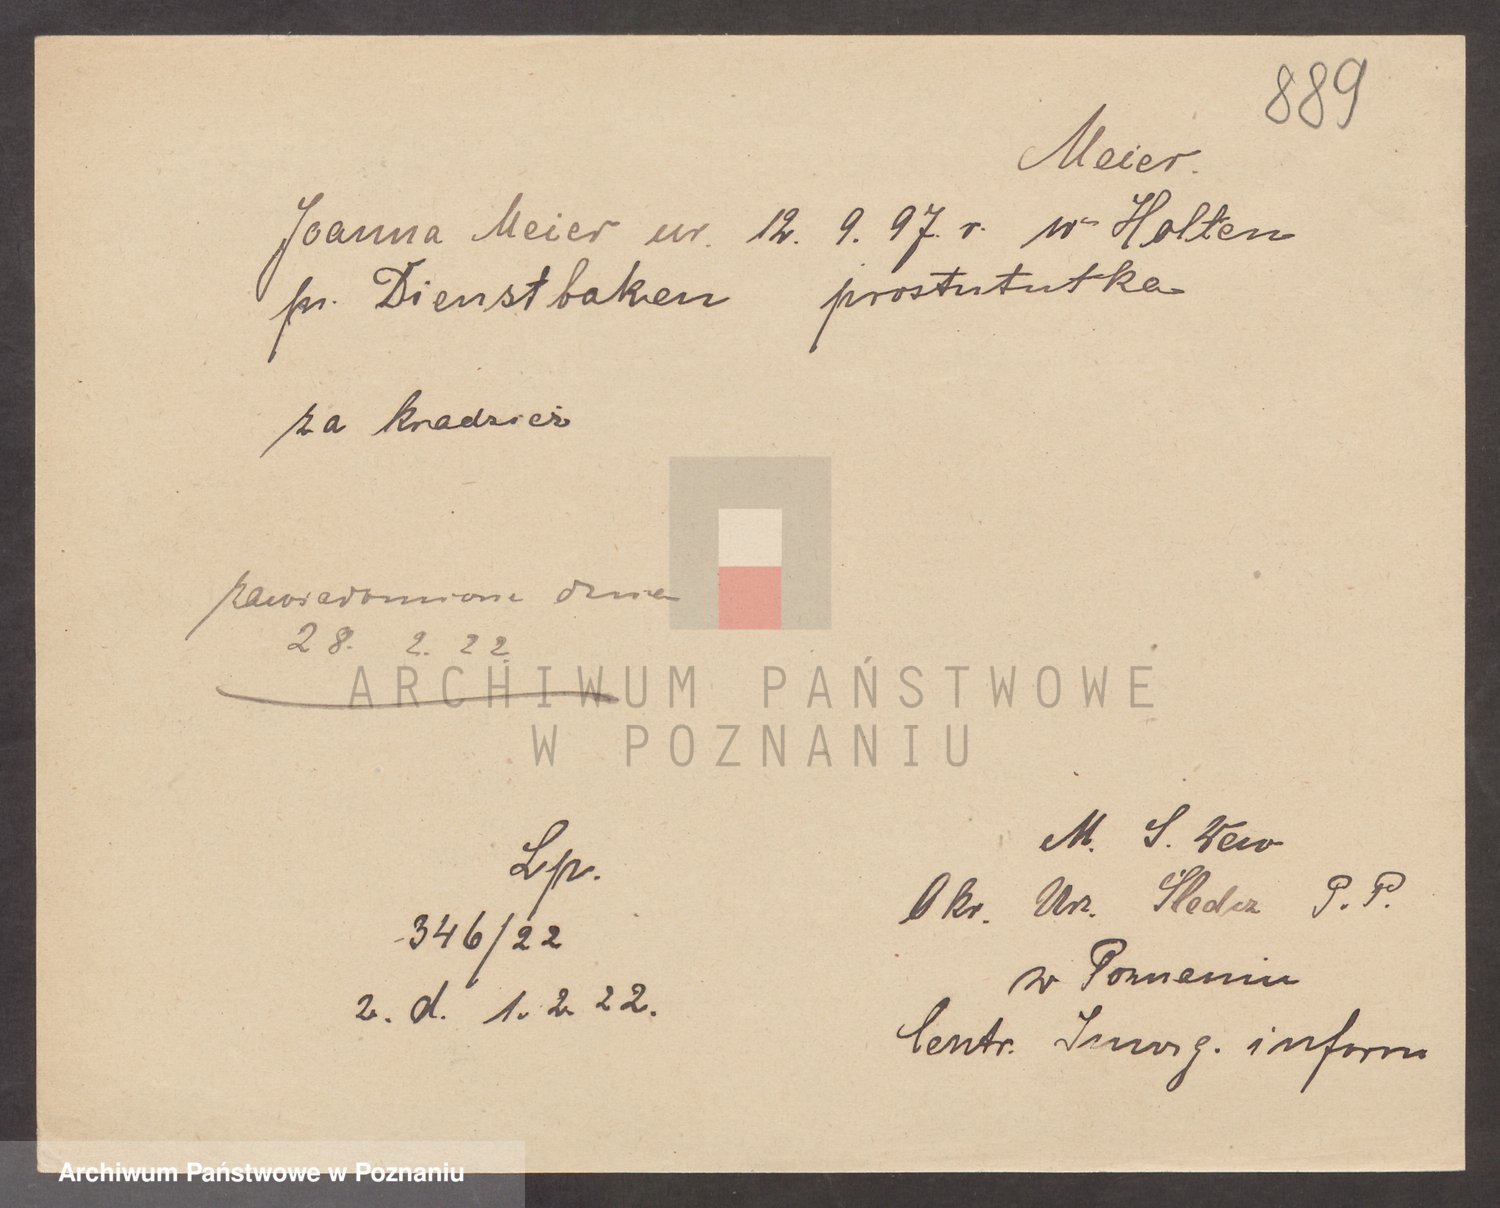 889
Meier.
Joanna Meier ur. 12. 9. 97. r. w Holten
pr. Dienstbaken prostututka
za kradzież
zawiadomione dnia
28. 2. 22
ARCHIWUM PAŃSTWOWE
W POZNANIU
Lp.
346/22
z. d. 1. 2. 22.
M. S. Wew
Okr. Urz. Śledcz P. P.
w Poznaniu
Centr. inform
Archiwum Państwowe w Poznaniu